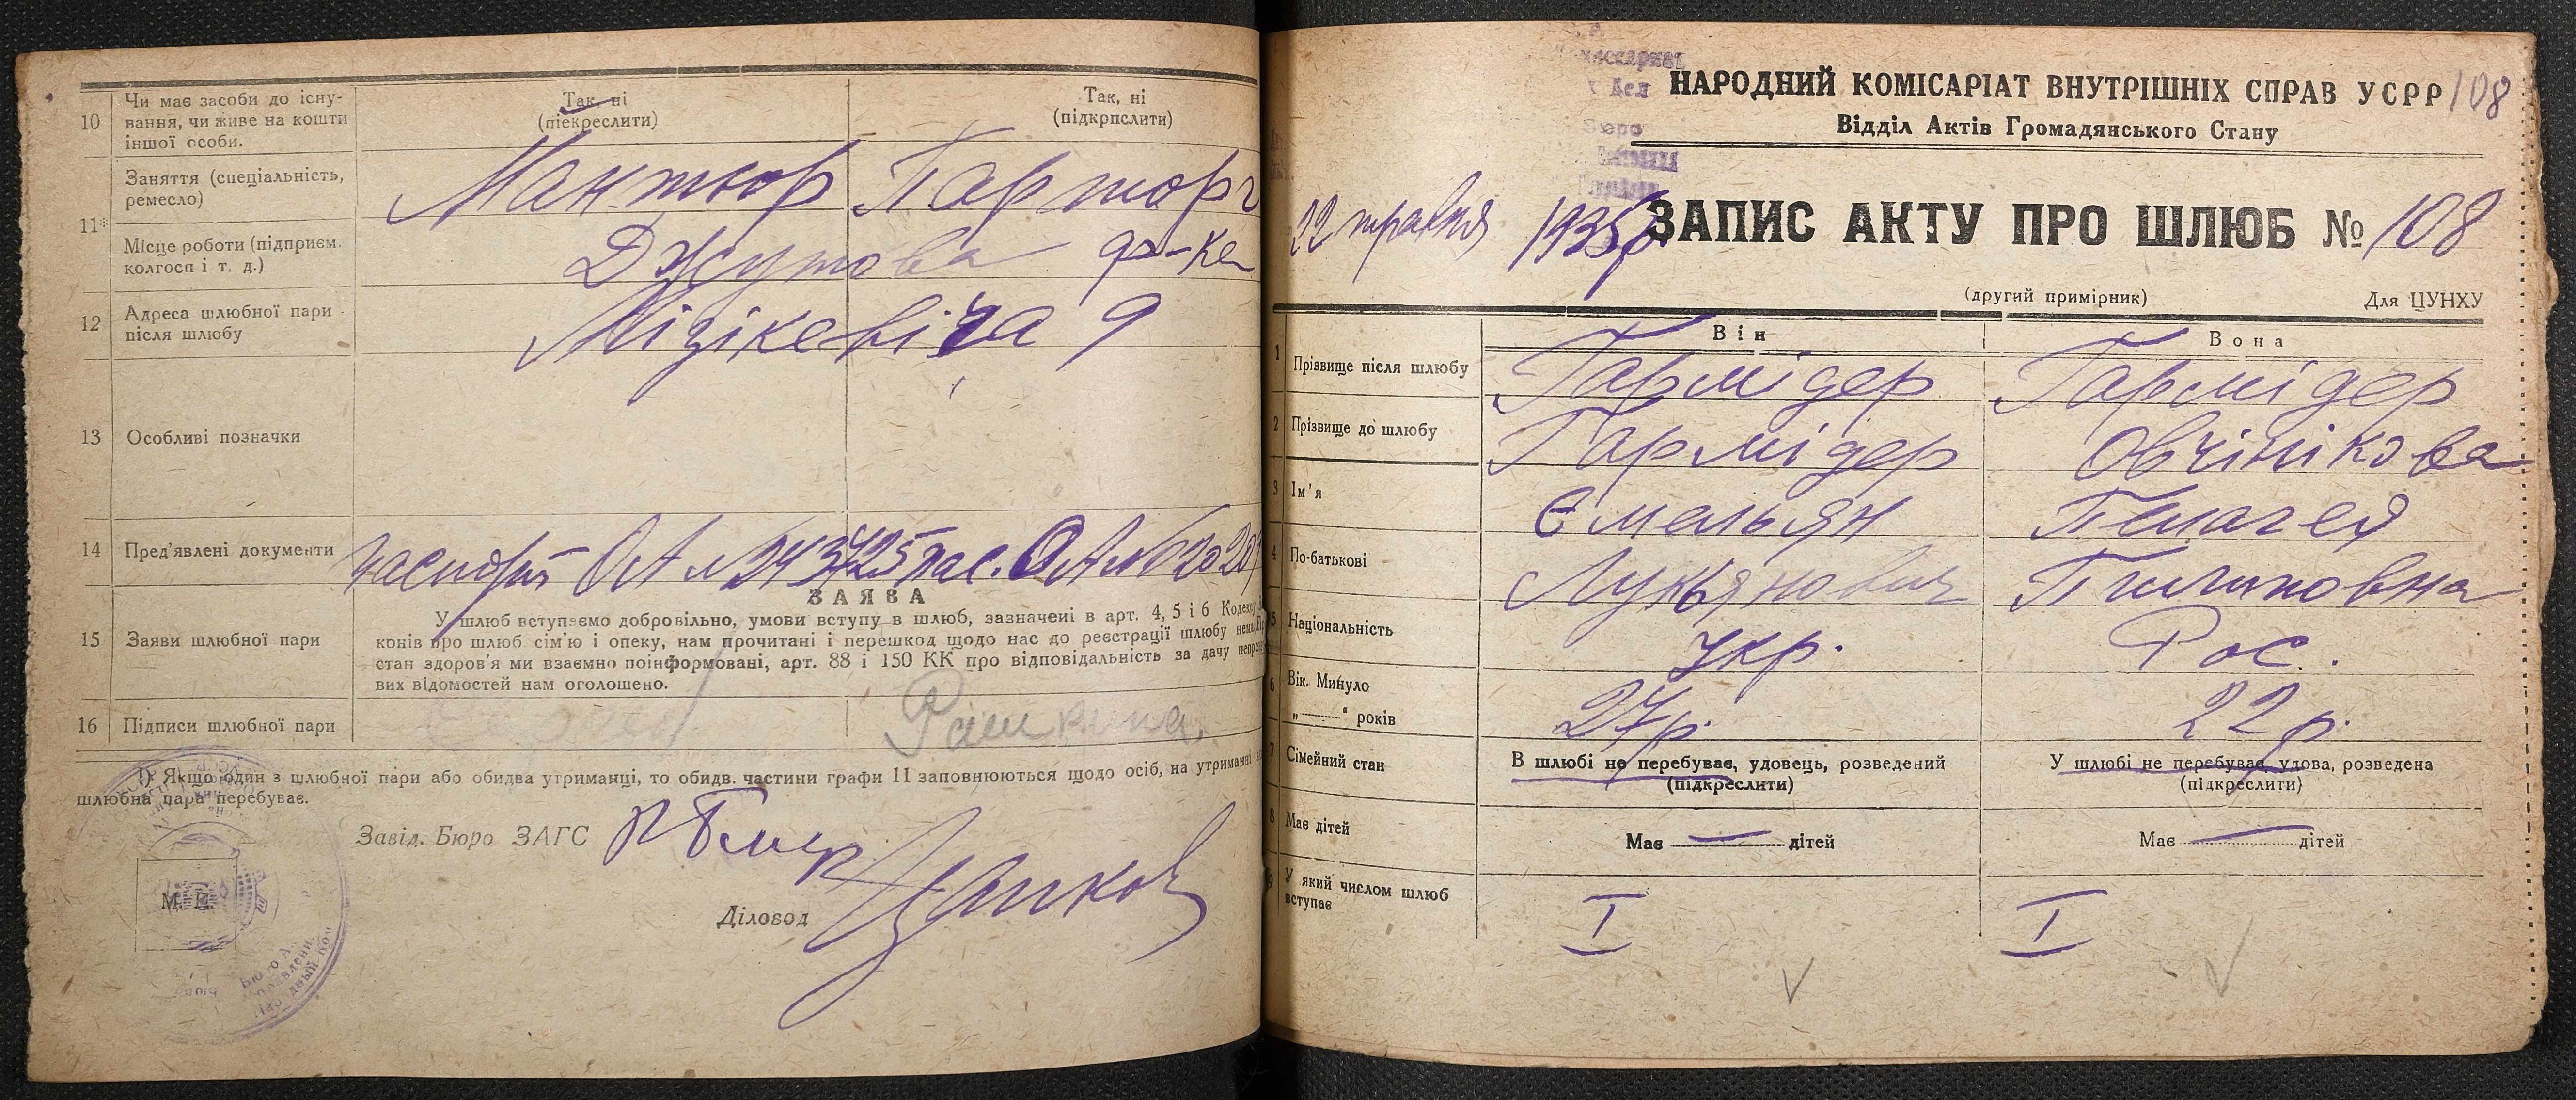 10 Чи має засоби до існування, чи живе на кошти іншої особи.
Так, ні
(піекреслити)
Так, ні
(підкрпслити)
11* Заняття (спеціальність, ремесло)
Мантьор
Парторг
Місце роботи (підприєм. колгосп і т. д.)
Джутова ф-ка
12 Адреса шлюбної пари після шлюбу
Міцікевіча 9
13 Особливі позначки
14 Пред'явлені документи
паспорт ОА № пас. ОА №
15 Заяви шлюбної пари
ЗАЯВА
У шлюб вступаємо добровільно, умови вступу в шлюб, зазначені в арт. 4, 5 і 6 Кодексу
конів про шлюб сім'ю і опеку, нам прочитані і перешкод щодо нас до реєстрації шлюбу нема.
стан здоров'я ми взаємно поінформовані, арт. 88 і 150 КК про відповідальність за дачу
вих відомостей нам оголошено.
16 Підписи шлюбної пари
1) Якщо один з шлюбної пари або обидва утриманці, то обидв. частини графи 11 заповнюються щодо осіб, на утриманні
шлюбна пара перебуває.
Завід. Бюро ЗАГС
Діловод
М. П.
НАРОДНИЙ КОМІСАРІАТ ВНУТРІШНІХ СПРАВ УСРР 108
Відділ Актів Громадянського Стану
22 травня 1935р.
ЗАПИС АКТУ ПРО ШЛЮБ № 108
(другий примірник)
Для ЦУНХУ
Він
Вона
1 Прізвище після шлюбу
Гармідер
Гармідер
2 Прізвище до шлюбу
Гармідер
Овчінікова
3 Ім'я
Ємельян
Пелагея
4 По-батькові
Лукьянович
Пилиповна
5 Національність
укр.
Рос.
6 Вік. Минуло
„ “ років
27 р.
22 р.
7 Сімейний стан
В шлюбі не перебуває, удовець, розведений
(підкреслити)
У шлюбі не перебуває, удова, розведена
(підкреслити)
8 Має дітей
Має — дітей
Має — дітей
9 У який числом шлюб вступає
I
I